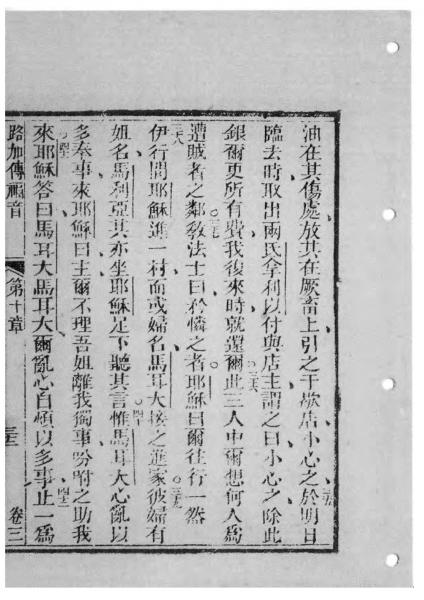 油在其傷處放其在厥畜上引之于歇店小心之於明日三五
臨去時取出兩氏拿利以付與店主謂之曰小心之除此
銀爾更所有費我復來時就還爾三六此三人中爾想何人為
遭賊者之鄰三七教法士曰矜憐之者耶穌曰爾往行一然
三八伊行間耶穌進一村而或婦名馬耳大接之進家三九彼婦有
姐名馬利亞其亦坐耶穌足下聽其言四十惟馬耳大心亂以
多奉事來耶穌曰主爾不理吾姐離我獨事吩咐之助我四二
四一來耶穌答曰馬耳大馬耳大爾亂心自煩以多事止一為
路加傳福音 第十章 三三 卷三